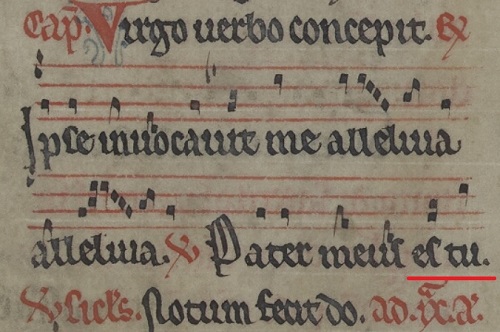 Cap. Virgo uerbo concepit. R
Ipse inuocauit me alleluia
alleluia. V Pater meus es tu.
V sicls. Notum fecit do. ad. Xc. a.